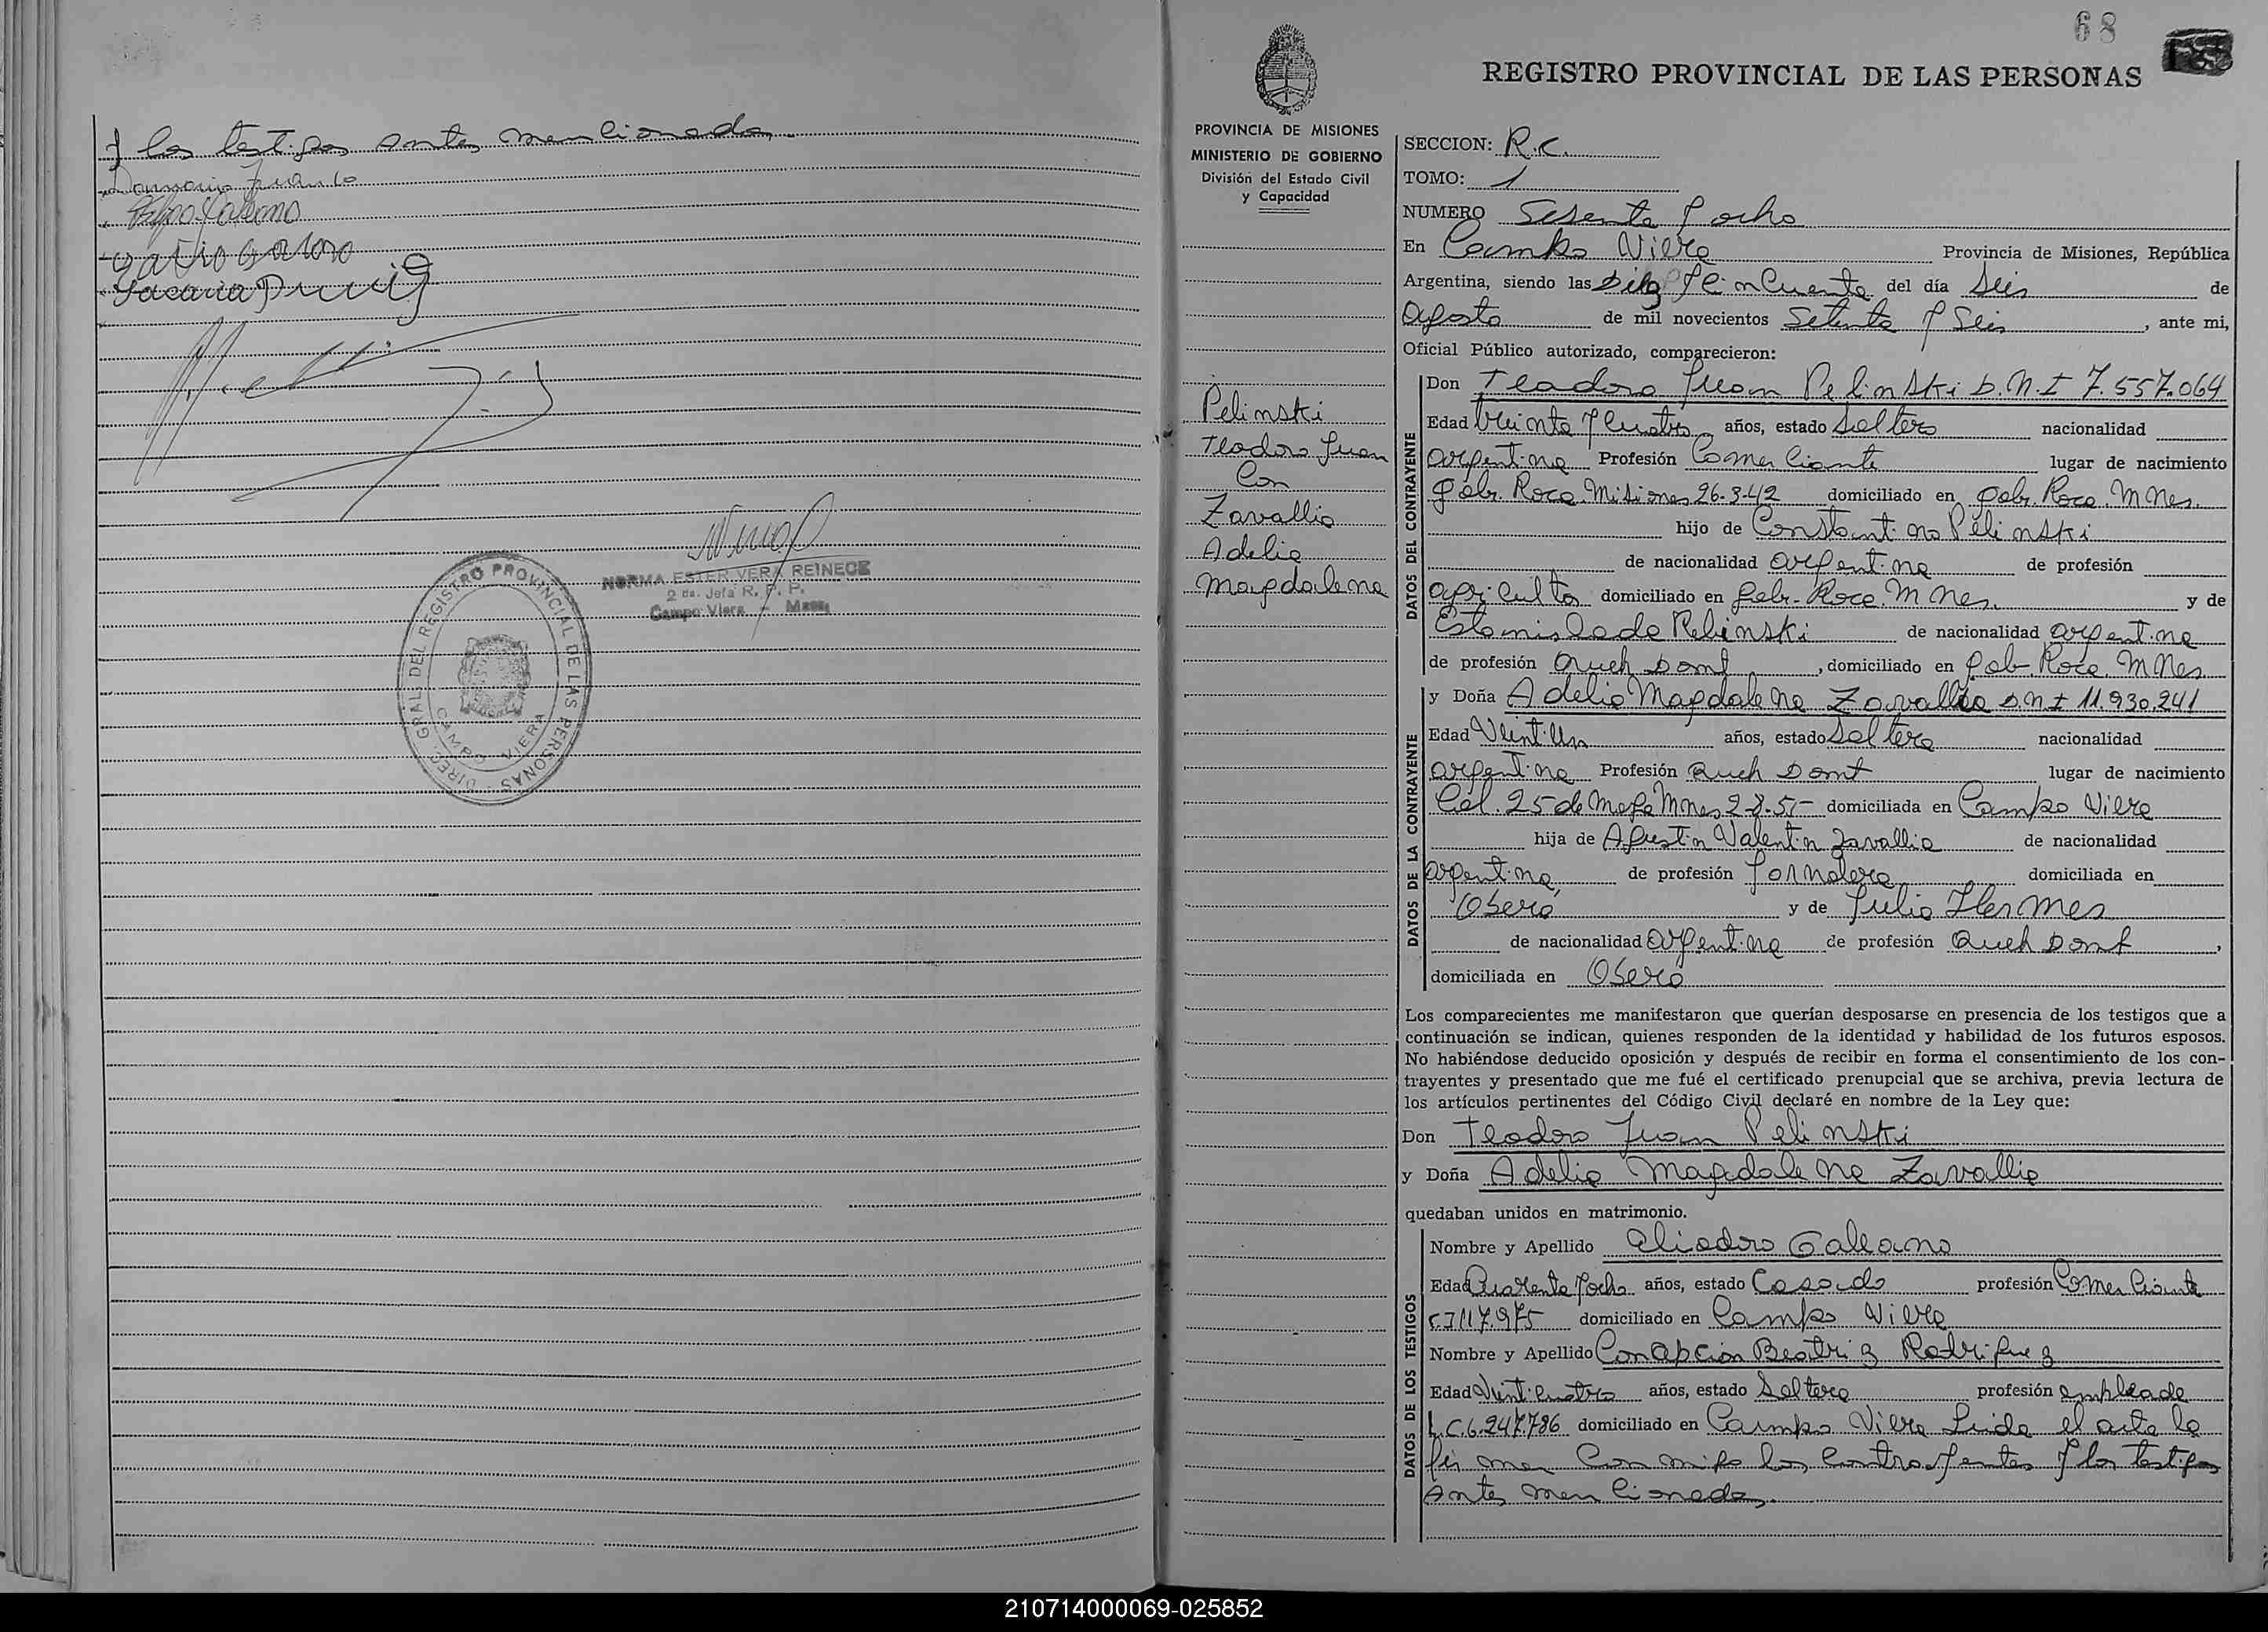 y los testigos antes mencionados.
NORMA ESTER VERA REINECK
2 da. Jefa R. P. P.
Campo Viera - Mnes.
DIREC. GRAL. DEL REGISTRO PROVINCIAL DE LAS PERSONAS
CAMPO VIERA
68
REGISTRO PROVINCIAL DE LAS PERSONAS
PROVINCIA DE MISIONES
MINISTERIO DE GOBIERNO
División del Estado Civil
y Capacidad
Pelinski
Teodoro Juan
Con
Zavallia
Adelia
Magdalena
SECCION: R.C.
TOMO: 1
NUMERO Sesenta y ocho
En Campo Viera Provincia de Misiones, República
Argentina, siendo las Diez y Cincuenta del día Seis de
Agosto de mil novecientos Setenta y Seis, ante mi,
Oficial Público autorizado, comparecieron:
DATOS DEL CONTRAYENTE
Don Teodoro Juan Pelinski D.N.I 7.557.064
Edad treinta y Cuatro años, estado Soltero nacionalidad
argentina Profesión Comerciante lugar de nacimiento
Gob. Roca. Misiones 26-3-42 domiciliado en Gob. Roca. Mnes.
hijo de Constantino Pelinski
de nacionalidad argentina de profesión
agricultor domiciliado en Gob. Roca. Mnes. y de
Estanislada Pelinski de nacionalidad argentina
de profesión Queh Domt, domiciliado en Gob. Roca. Mnes
DATOS DE LA CONTRAYENTE
y Doña Adelia Magdalena Zavallia D.N.I 11.930.241
Edad Veintiun años, estado Soltera nacionalidad
argentina Profesión Queh Domt lugar de nacimiento
Col. 25 de Mayo Mnes 2-8-5 domiciliada en Campo Viera
hija de Agustin Valentin Zavallia de nacionalidad
argentina de profesión Jornalero domiciliada en
Oberá y de Julia Hermes
de nacionalidad argentina de profesión Queh Domt,
domiciliada en Oberá
Los comparecientes me manifestaron que querían desposarse en presencia de los testigos que a
continuación se indican, quienes responden de la identidad y habilidad de los futuros esposos.
No habiéndose deducido oposición y después de recibir en forma el consentimiento de los con-
trayentes y presentado que me fué el certificado prenupcial que se archiva, previa lectura de
los artículos pertinentes del Código Civil declaré en nombre de la Ley que:
Don Teodoro Juan Pelinski
y Doña Adelia Magdalena Zavallia
quedaban unidos en matrimonio.
DATOS DE LOS TESTIGOS
Nombre y Apellido Eliodoro Galeano
Edad Cuarenta y ocho años, estado Casado profesión Comerciante
C.I 117.975 domiciliado en Campo Viera
Nombre y Apellido Concepcion Beatriz Rodriguez
Edad Veinticuatro años, estado Soltera profesión empleada
L.C.6.247.786 domiciliado en Campo Viera Leida el acta la
firman Con migo los Contrayentes y los testigos
Antes mencionados.
210714000069-025852